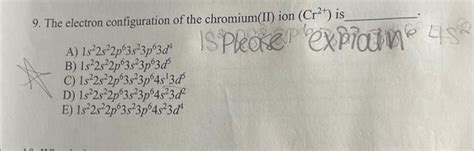 9. The electron configuration of the chromium(II) ion (Cr²⁺) is________.
Please explain
A) 1s²2s²2p⁶3s²3p⁶3d⁴
B) 1s²2s²2p⁶3s²3p⁶3d⁵
C) 1s²2s²2p⁶3s²3p⁶4s¹3d⁵
D) 1s²2s²2p⁶3s²3p⁶4s²3d²
E) 1s²2s²2p⁶3s²3p⁶4s²3d⁴